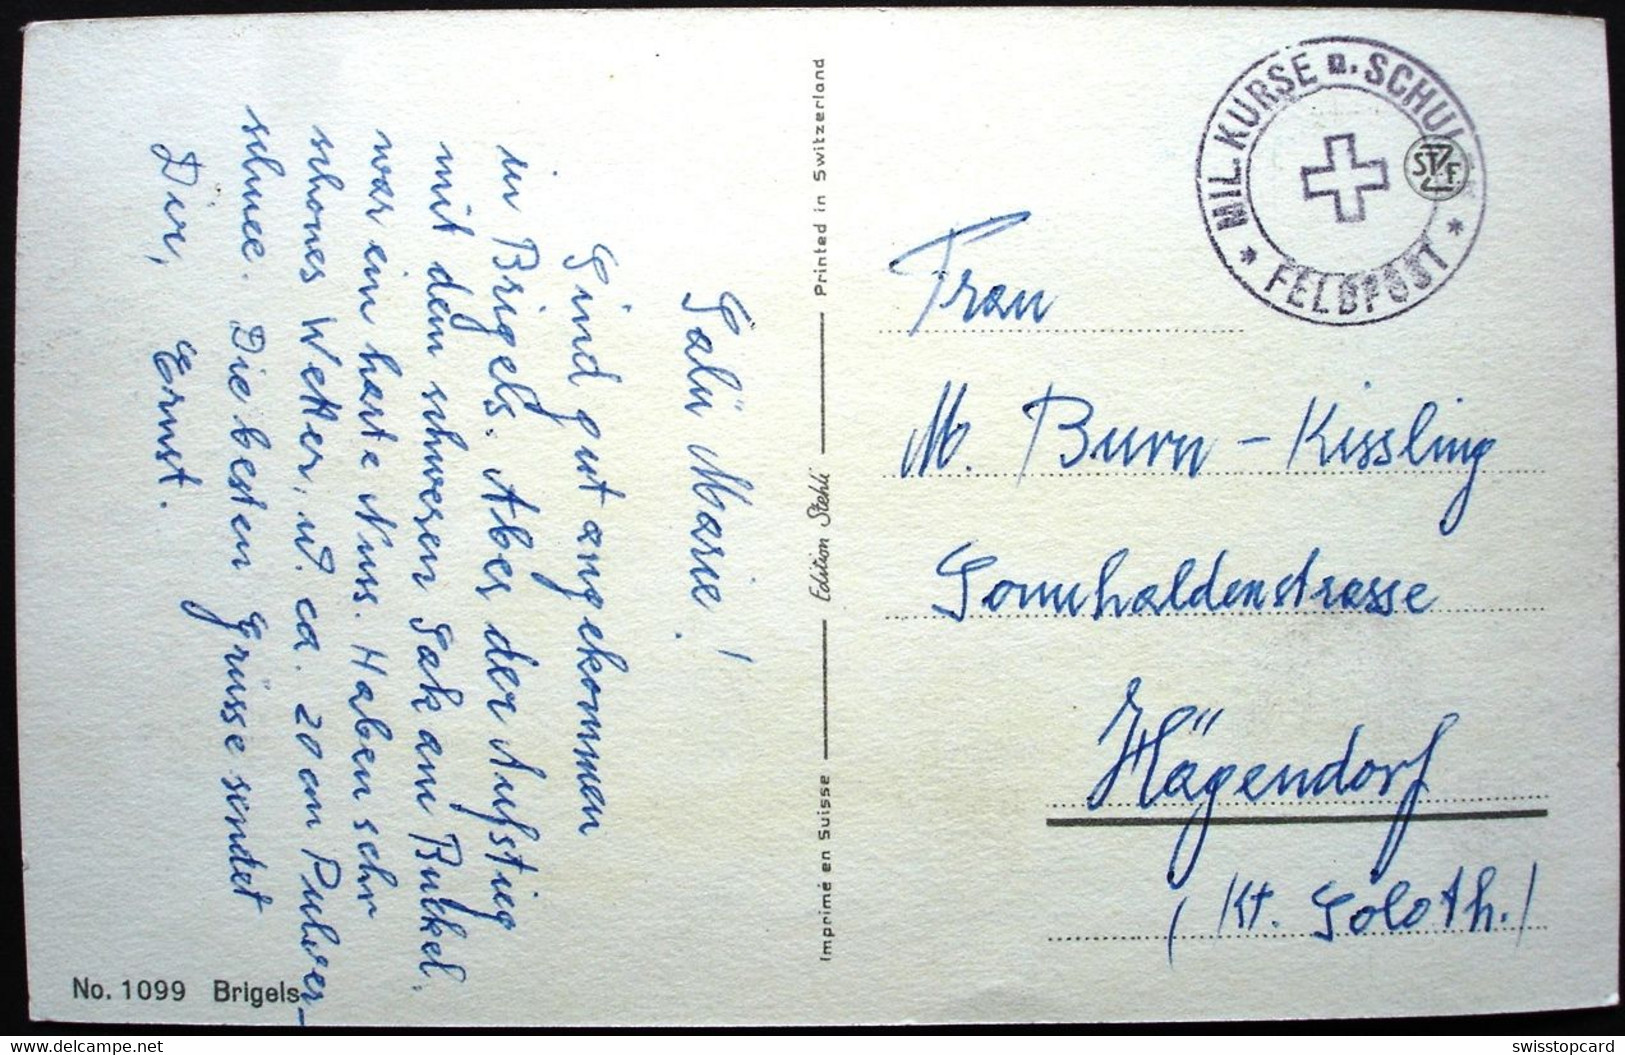 Salü Marie!
Sind gut angekommen
in Brigels. Aber der Aufstieg
mit dem schweren Sak am Bukkel.
war ein harte Nuss. Haben sehr
schones Wetter, u. ca. 20 cm Pulver-
schnee. Die besten Grüsse sendet
Dir, Ernst.
No. 1099 Brigels
Imprimé en Suisse
Edition Stehli
Printed in Switzerland
MIL. KURSE u. SCHULEN
* FELDPOST *
S Z F.
Frau
M. Burn - Kissling
Sonnhaldenstrasse
Hägendorf
(Kt. Soloth.)
delcampe.net
swisstopcard